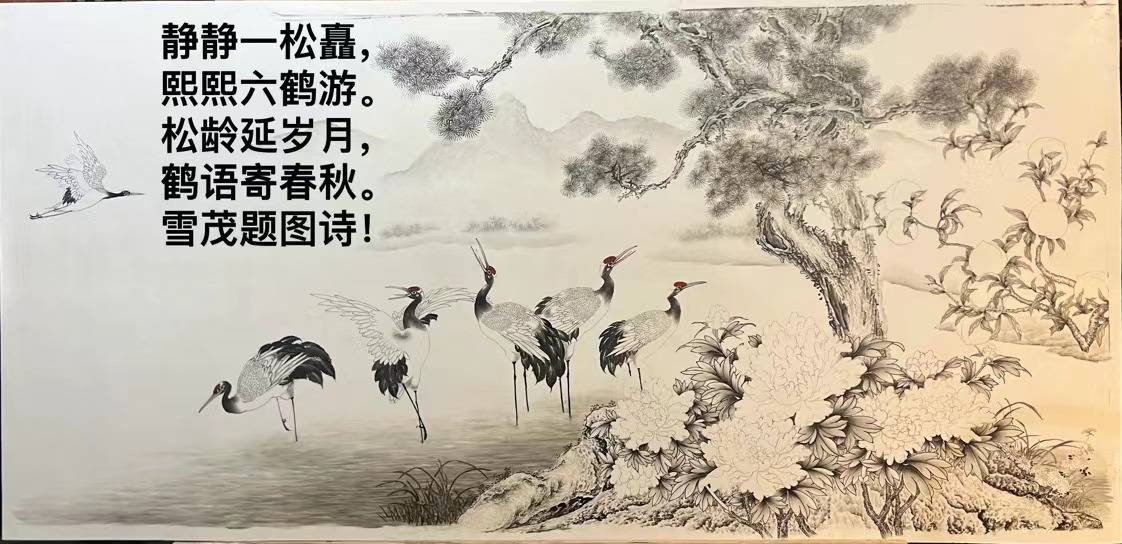 静静一松矗，
熙熙六鹤游。
松龄延岁月，
鹤语寄春秋。
雪茂题图诗！